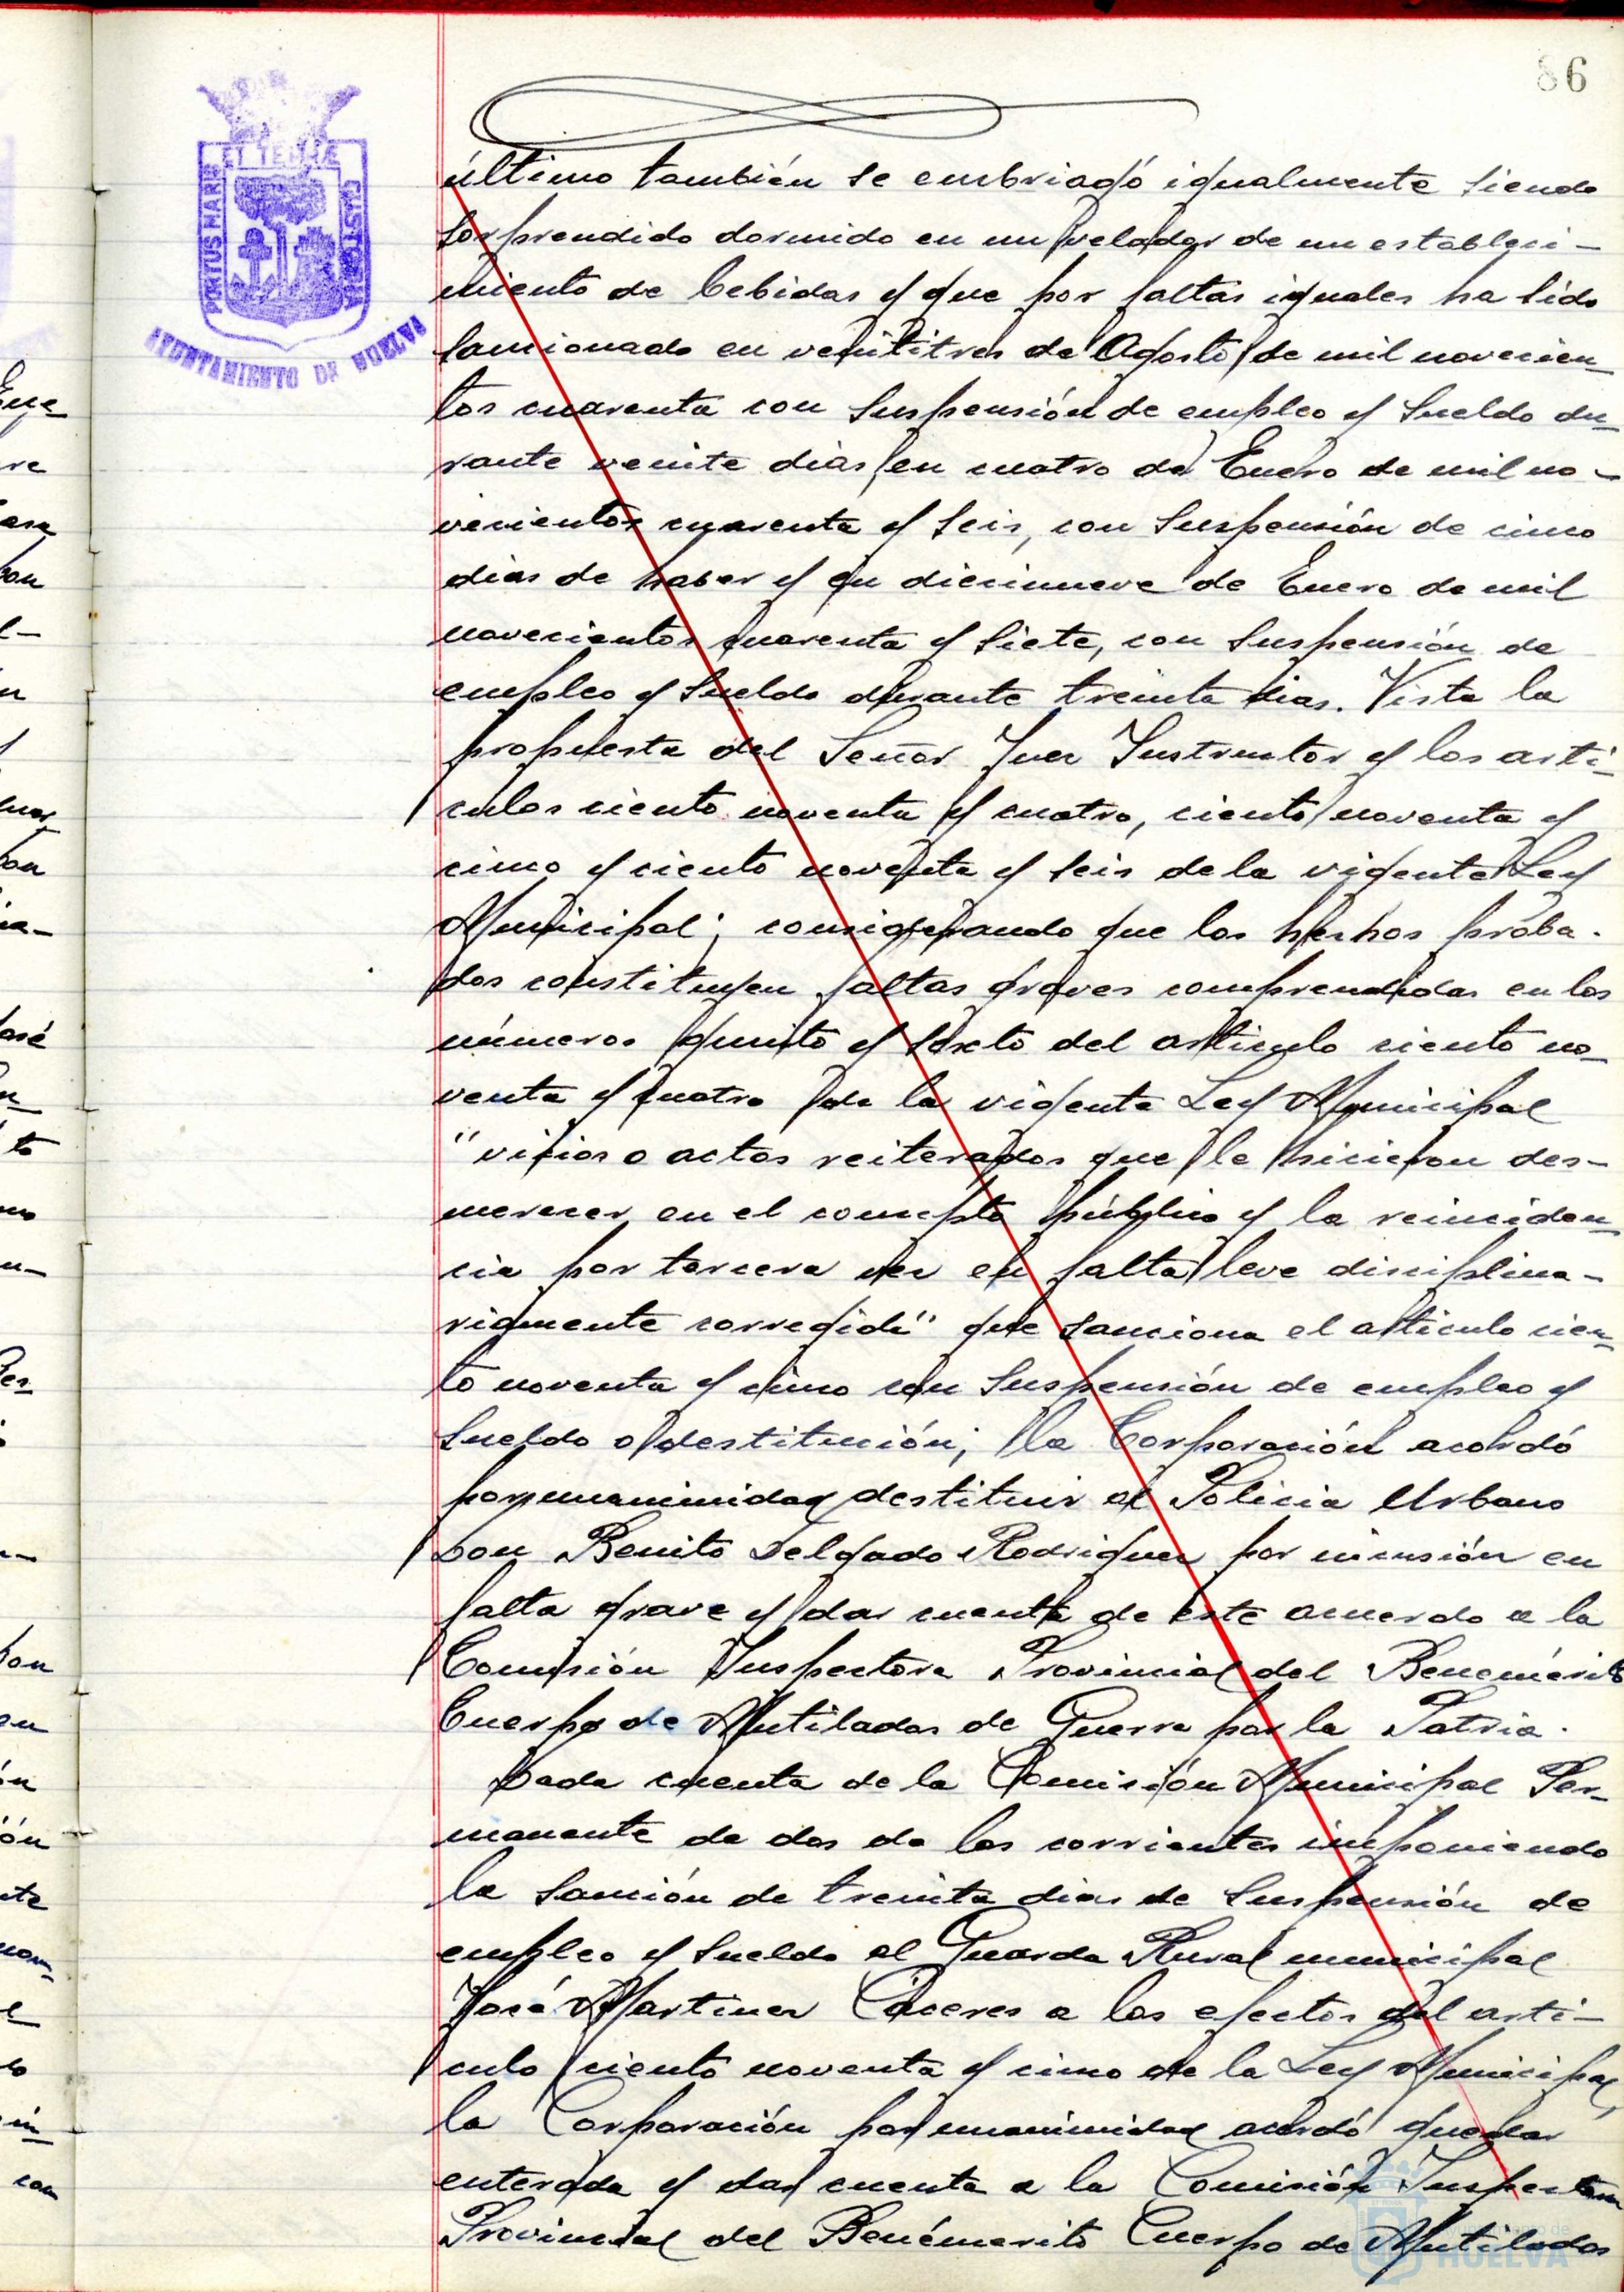 86
PORTUS MARIS ET TERRÆ CUSTODIA
AYUNTAMIENTO DE HUELVA
último también se embriagó igualmente siendo
sorprendido dormido en un velador de un estableci-
miento de bebidas y que por faltas iguales ha sido
sancionado en veintitres de Agosto de mil novecien-
tos cuarenta con suspensión de empleo y sueldo du-
rante veinte dias, en cuatro de Enero de mil no-
vecientos cuarenta y seis, con suspensión de cinco
dias de haber y en diecinueve de Enero de mil
novecientos cuarenta y siete, con suspensión de
empleo y sueldo durante treinta dias. Vista la
propuesta del Señor Juez Instructor y los arti-
culos ciento noventa y cuatro, ciento noventa y
cinco y ciento noventa y seis de la vigente Ley
Municipal; considerando que los hechos proba-
dos constituyen faltas graves comprendidas en los
números quinto y sexto del articulo ciento no-
venta y cuatro de la vigente Ley Municipal
"vicios o actos reiterados que le hicieron des-
merecer en el concepto público y la reinciden-
cia por tercera vez en falta leve disciplina-
riamente corregida" que sanciona el articulo cien-
to noventa y cinco con suspensión de empleo y
sueldo o destitución; la Corporación acordó
por unanimidad destituir al Policia Urbano
Don Benito Delgado Rodriguez por incursión en
falta grave y dar cuenta de este acuerdo a la
Comisión Inspectora Provincial del Benemérito
Cuerpo de Mutilados de Guerra por la Patria.
Dada cuenta de la Comisión Municipal Per-
manente de dos de los corrientes imponiendo
la sanción de treinta dias de suspensión de
empleo y sueldo al Guarda Rural municipal
José Martinez Cáceres a los efectos del arti-
culo ciento noventa y cinco de la Ley Municipal,
la Corporación por unanimidad acordó quedar
enterada y dar cuenta a la Comisión Inspectora
Provincial del Benémerito Cuerpo de Mutilados
Ayuntamiento de
HUELVA